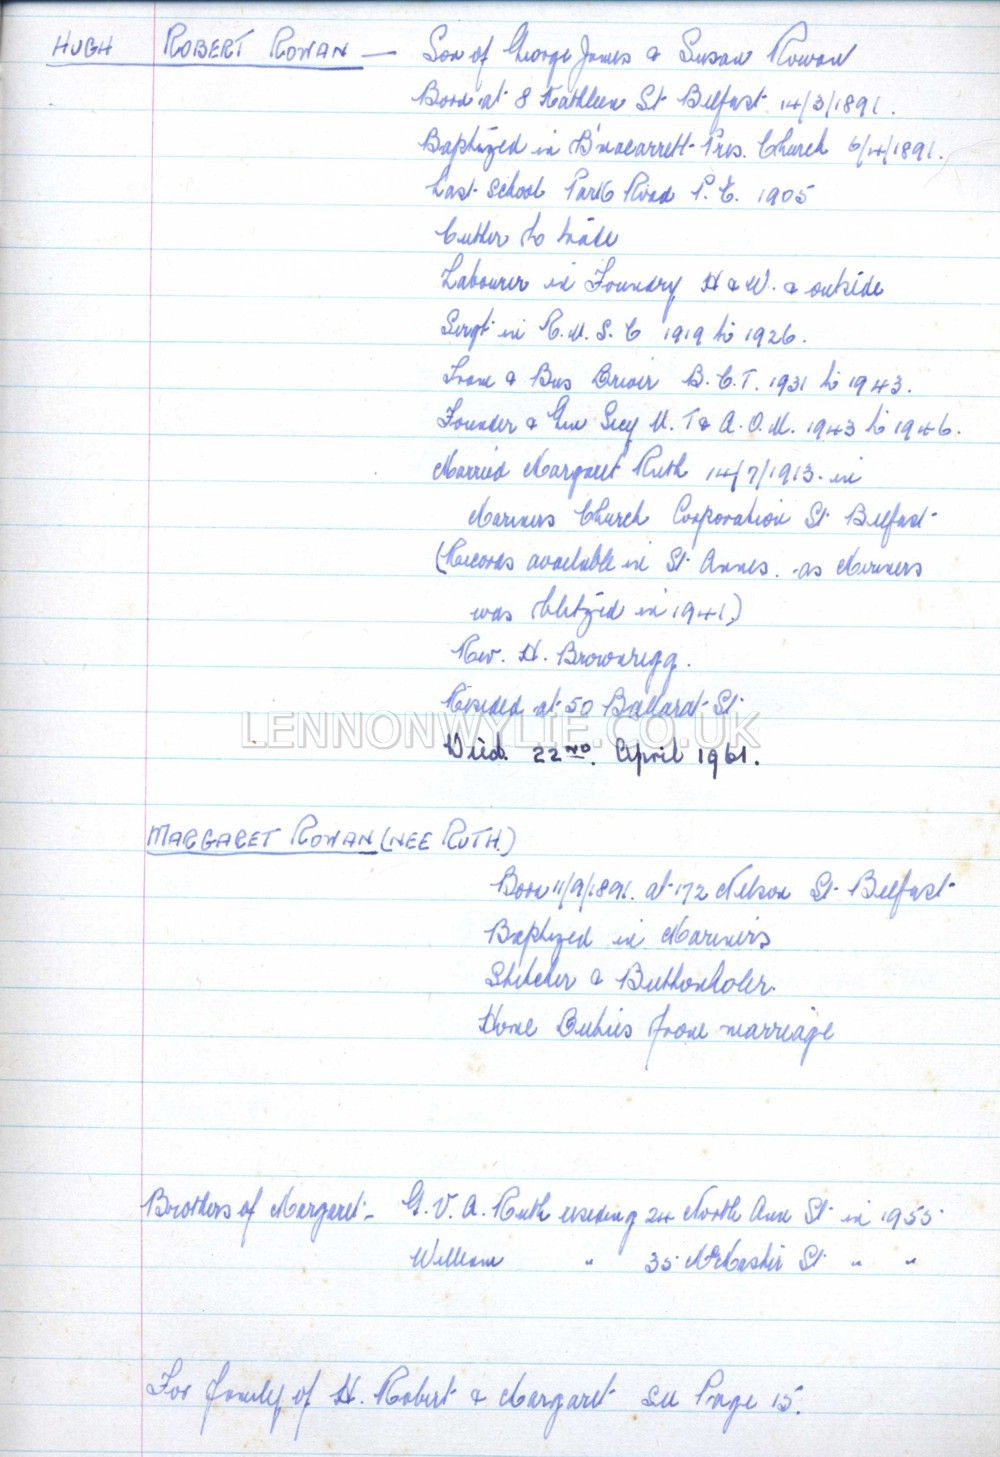 HUGH ROBERT ROWAN — Son of George James & Susan Rowan
Born at 8 Kathleen St Belfast 14/3/1891.
Baptized in B'macarrett Pres. Church 6/4/1891.
Last School Park Road P.E. 1905
Cutler to trade
Labourer in Foundry H & W. & outside
Sergt in R.M.S.C 1919 to 1926.
Tram & Bus Driver B.C.T. 1931 to 1943.
Founder & Gen Secy M.T & A.O.M. 1943 to 1946.
Married Margaret Ruth 14/7/1913. in
Mariners Church Corporation St Belfast
(Records available in St Annes. as Mariners
was blitzed in 1941)
Rev. H. Brownrigg.
Resided at 50 Ballarat St
LENNONWYLIE.CO.UK
Died. 22ND. April 1961.
MARGARET ROWAN (NEE RUTH.)
Born 11/9/1891. at 172 Nelson St Belfast
Baptized in Mariners
Stitcher & Buttonholer.
Home Duties from marriage
Brothers of Margaret - G. V. A. Ruth residing 24 North Ann St in 1955
William " 35 McMaster St " "
For family of H. Robert & Margaret see Page 15.